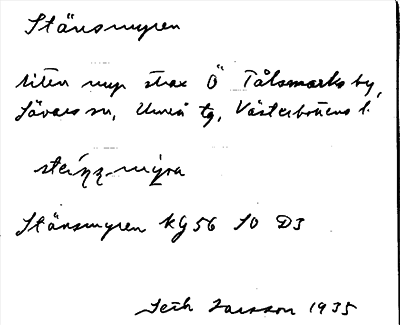 Stänsmyren
liten myr strax Ö Tålsmarks by,
Sävars sn, Umeå tg, Västerbottens l.
Stänsmyren Kg 56 SO D3
Seth Larsson 1935